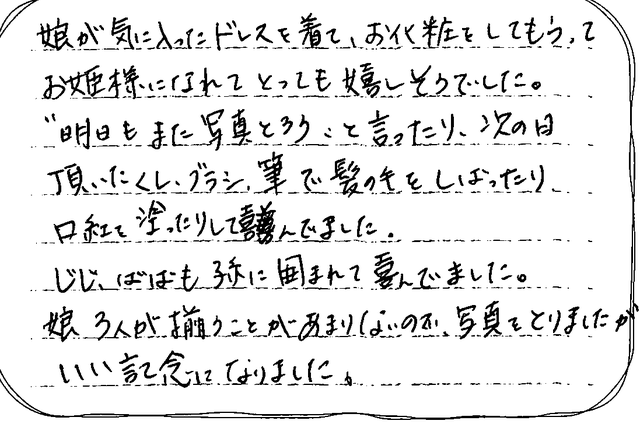 娘が気に入ったドレスを着て、お化粧をしてもらって
お姫様になれてとっても嬉しそうでした。
"明日もまた写真とろう"と言ったり、次の日
頂いたくし、ブラシ、筆で髪の毛をしばったり
口紅を塗ったりして喜んでました。
じじ、ばばも孫に囲まれて喜んでました。
娘3人が揃うことがあまりないので、写真をとりましたが
いい記念になりました。